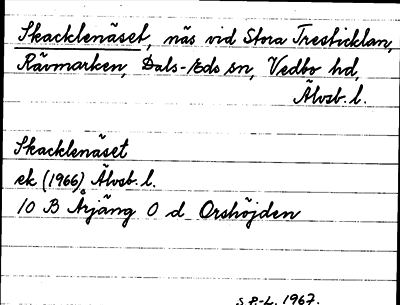 Skacklenäset, näs vid Stora Tresticklan,
Rävmarken, Dals-Eds sn, Vedbo hd,
Älvsb. l.
Skacklenäset
ek (1966) Älvsb. l.
10 B Årjäng 0 d Orshöjden
S P.-L. 1967.